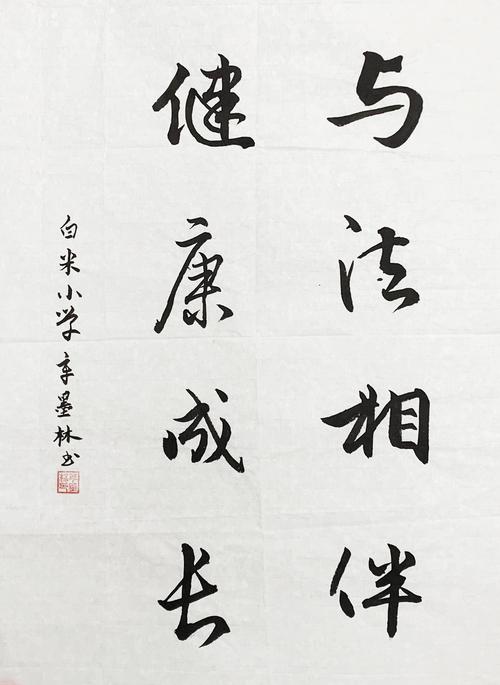 与法相伴
健康成长
白米小学章墨林书